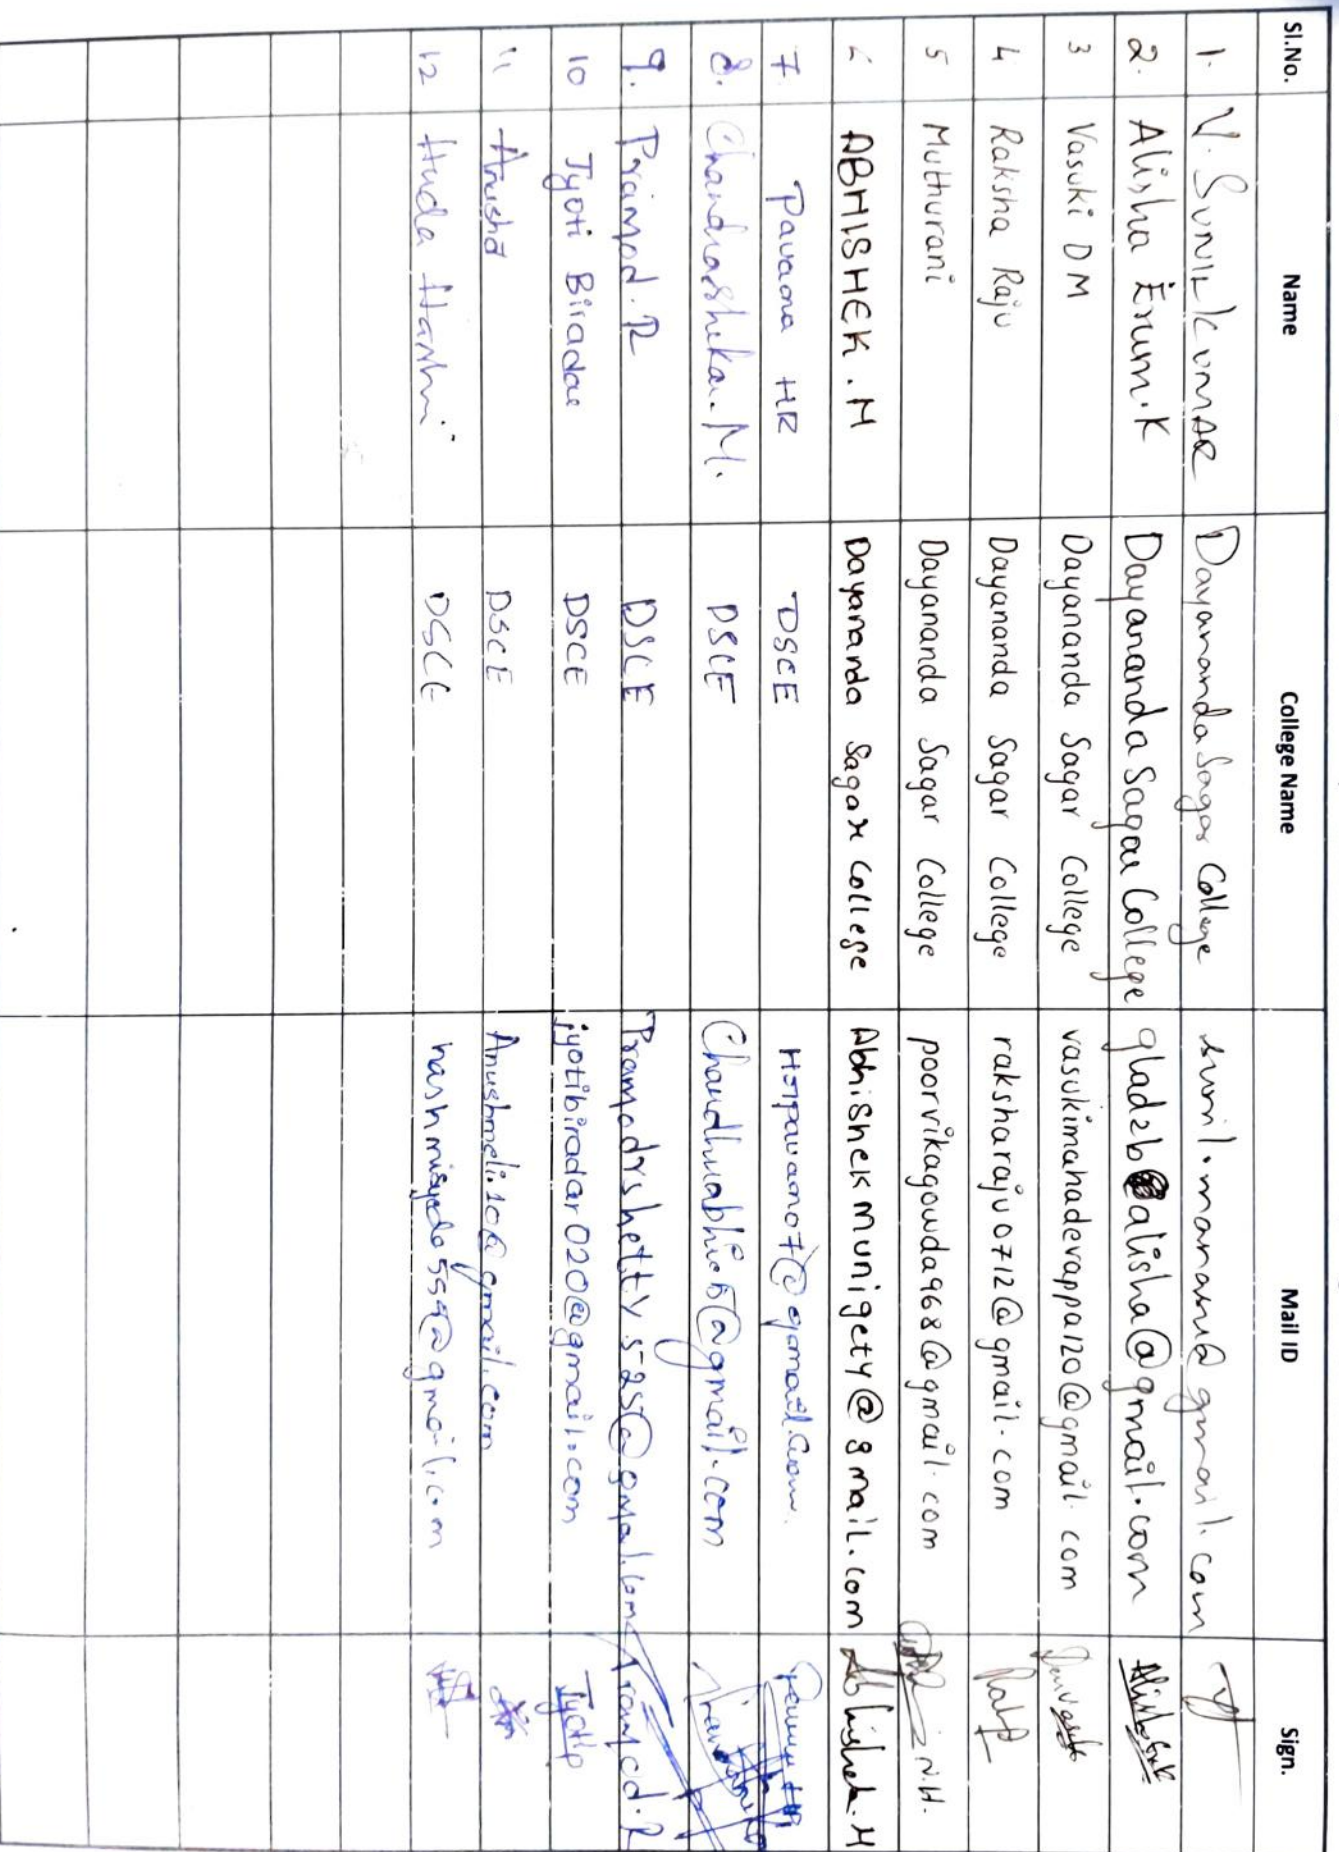 Sl.No. Name College Name Mail ID Sign.
1. V. Sunil Kumar Dayananda Sagar College sunil.manasu@gmail.com
2. Alisha Erum.K Dayananda Sagar College gladzb alisha@gmail.com Alisha Erum.K
3 Vasuki DM Dayananda Sagar College vasukimahadevappa120@gmail.com
4 Raksha Raju Dayananda Sagar College raksharaju0712@gmail.com
5 Muthurani Dayananda Sagar College poorvikagowda968@gmail.com
6 ABHISHEK.M Dayananda Sagar College Abhishekmunigety@gmail.com Abhishek.M
7 Pavana HR DSCE
8. Chandrashekar.M. DSCE
9. Pramod.R DSCE Pramodrshetty525@gmail.com Pramod.R
10 Jyoti Biradar DSCE jyotibiradar020@gmail.com Jyoti
11 Anusha DSCE
12 Huda Hashmi DSCE